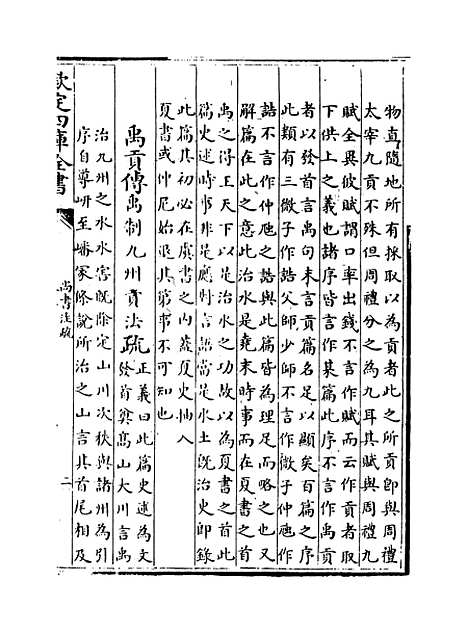 物直隨地所有採取以為貢者此之所貢即與周禮
太宰九貢不殊但周禮分之為九耳其賦與周禮九
賦全異彼賦謂口率出錢不言作賦而云作貢者取
下供上之義也諸序皆言作某篇此序不言作禹貢
者以發首言禹句末言貢篇名足以顯矣百篇之序
此類有三微子作誥父師少師不言作微子仲虺作
誥不言作仲虺之誥與此篇皆為理足而略之也又
解篇在此之意此治水是堯末時事而在夏書之首
禹之得王天下以是治水之功故以為夏書之首此
篇史述時事非是應對言語當是水土既治史即錄
此篇其初必在虞書之內蓋夏史抽入
夏書或仲尼始退其第事不可知也
禹貢傳禹制九州貢法疏正義曰此篇史述為文
發首奠高山大川言禹
治九州之水水害既除定山川次秩與諸州為引
序自導岍至嶓冢條說所治之山言其首尾相及
欽定四庫全書
尚書注疏
二